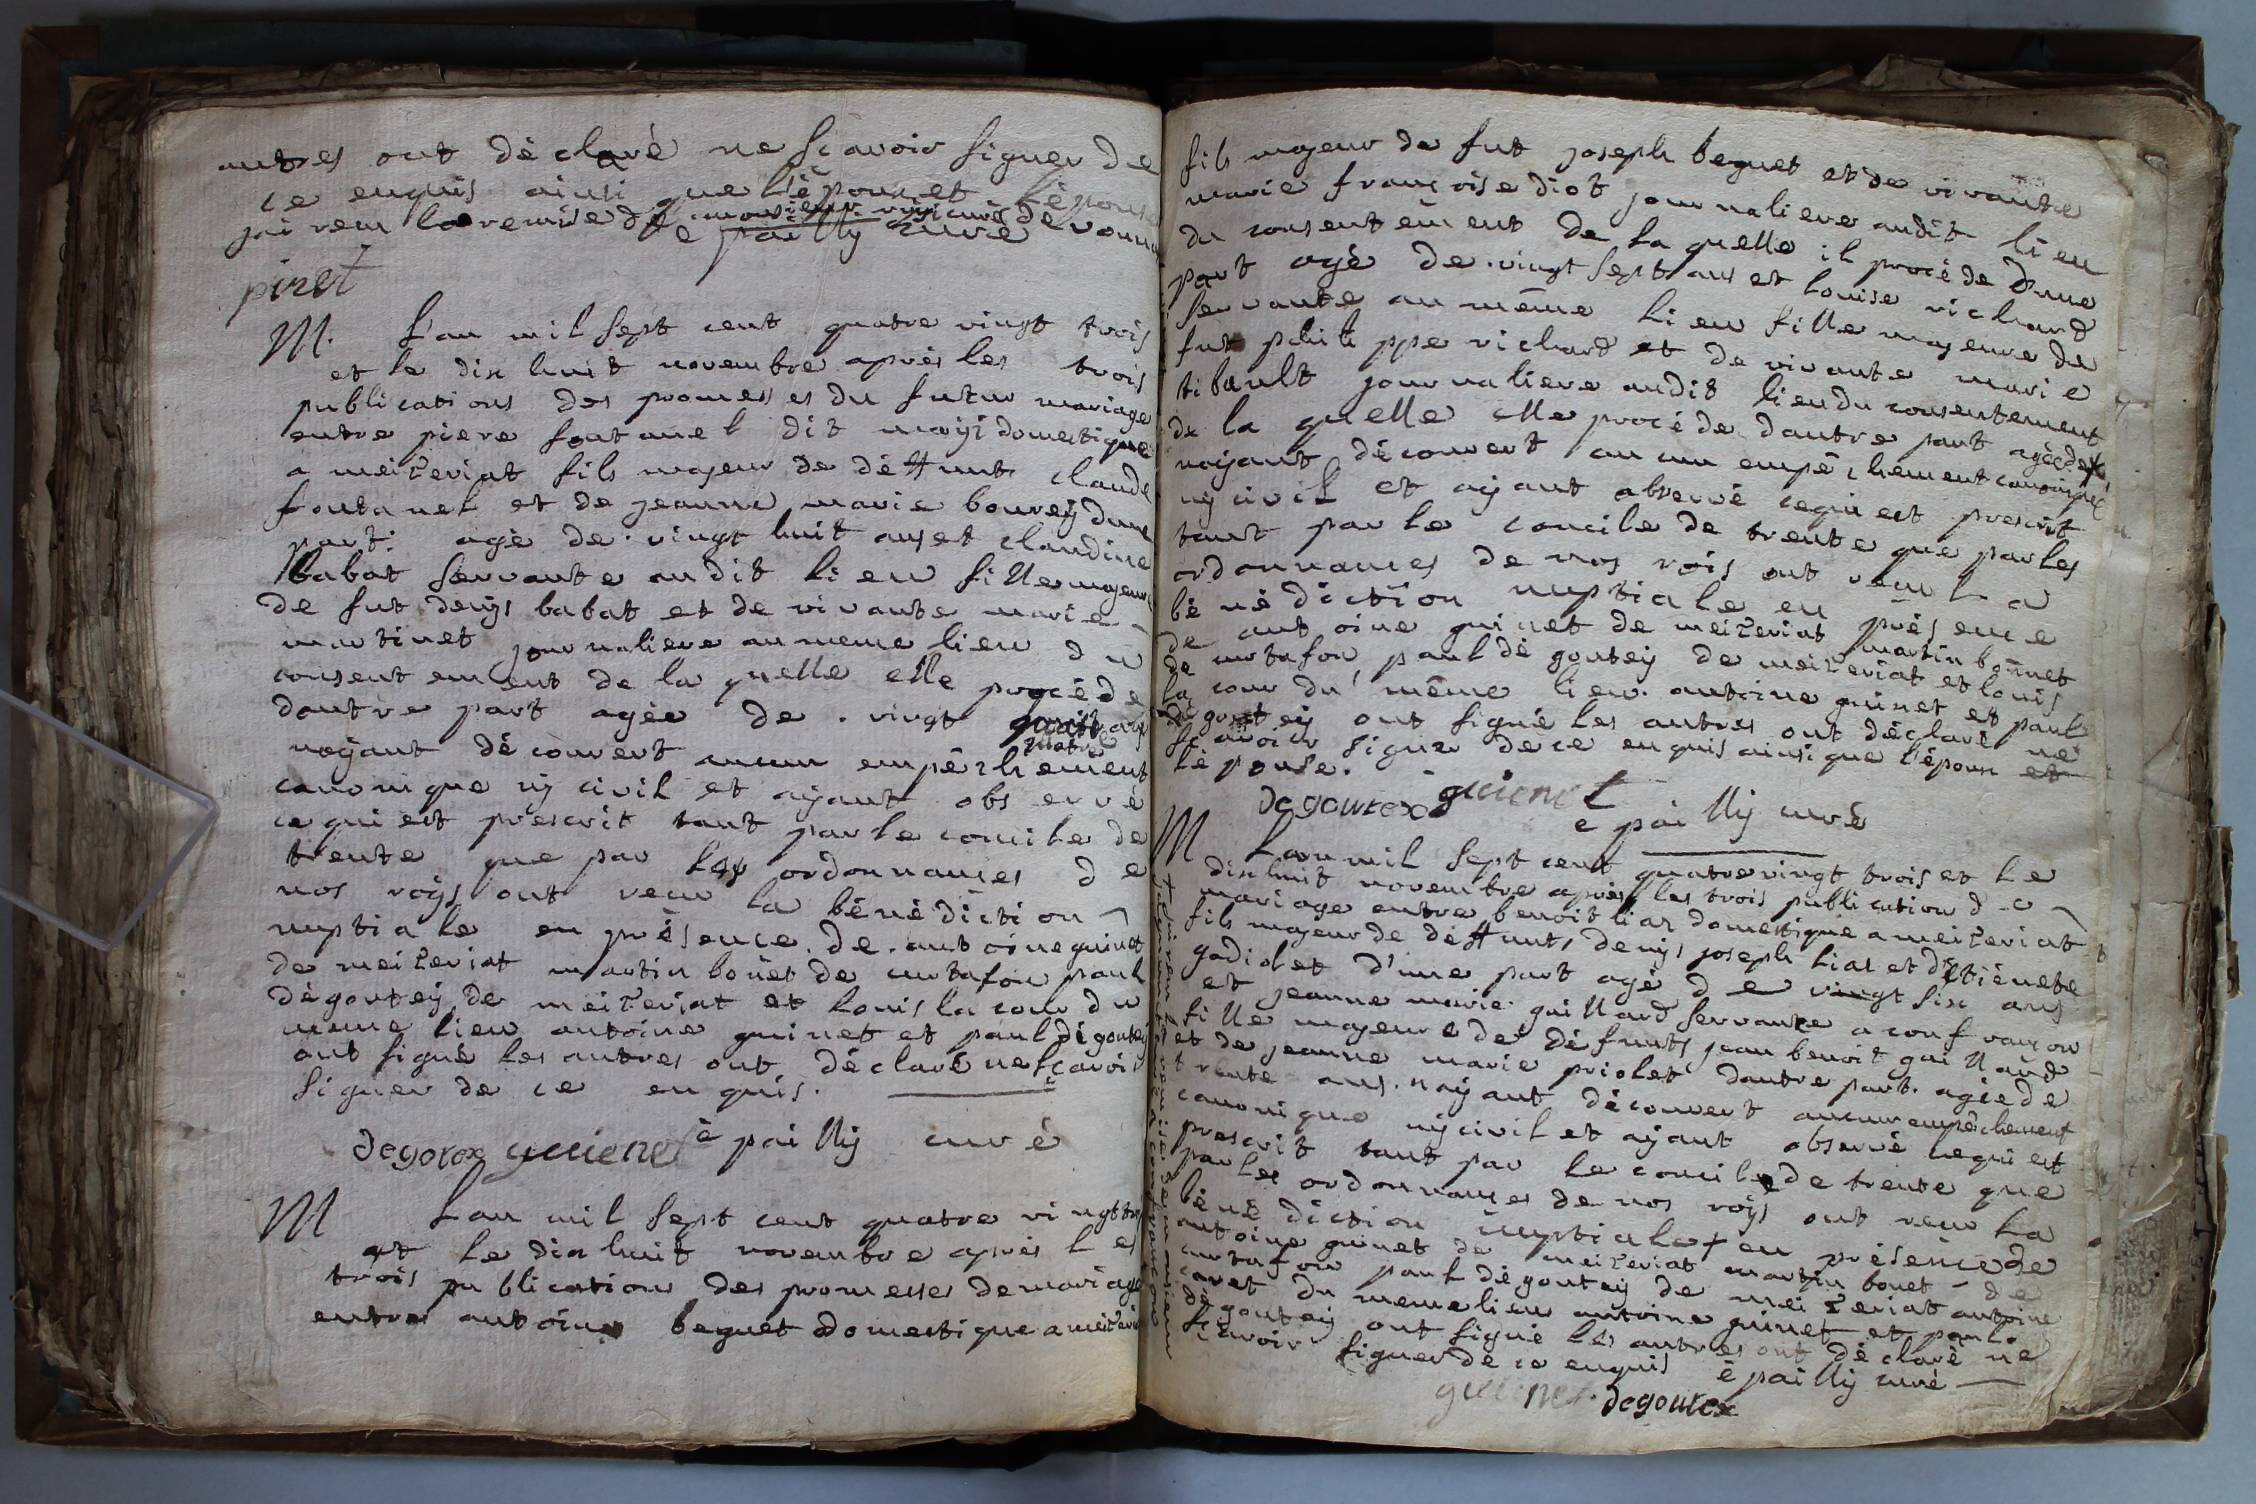 autres ont déclaré ne sçavoir signer de
ce enquis ainsi que l'époux et l'épouse
jai reçu la remise de monsieur curé de vonna
e pailly curé
piret
M. L'an mil sept cent quatre vingt trois
et le dix huit novembre après les trois
publications des promesses du futur mariage
entre piere fontanel dit domestique
a meizeriat fils majeur de déffunt claude
fontanel et de jeanne marie bourey dune
part: agé de vingt huit ans et claudine
babat servante audit lieu fille majeure
de fut denys babat et de vivante marie
martinet journaliere au meme lieu du
consentement de la quelle elle procéde
dautre part agée de vingt quatre ans
quatre
nayant découvert aucun empéchement
canonique ny civil et ayant observé
ce qui est préscrit tant par le concile de
trente que par les ordonnances de
nos roys ont reçu la bénédiction
nuptiale en présence de antoine guinet
de meizeriat martin bonet de curtafon paul
dégoutey de meizeriat et louis la cour du
meme lieu antoine guinet et paul dégoutey
ont signé les autres ont déclaré ne sçavoir
signer de ce enquis.
degotex guienet é pailly curé
M L'an mil sept cent quatre vingt trois
et le dix huit novembre après les
trois publication des promesses de mariage
entre antoine beguet domestique a meizeriat
fils majeur de fut joseph beguet et de vivante
marie françoise diot journaliere audit lieu
du consentement de la quelle il procéde d'une
part agé de vingt sept ans et louise richard
servante au même lieu fille majeure de
fut philippe richard et de vivante marie
tibault journaliere audit lieu du consentement
de la quelle elle procéde dautre part agée de
nayant découvert aucun empéchement canonique
ny civil et ayant observé ce qui est prescrit
tant par le concile de trente que par les
ordonnances de nos rois ont reçu la
bénédiction nuptiale en présence
de antoine guinet de meizeriat martin bonnet
de curtafon paul dégoutey de meizeriat et louis
la cour du même lieu. antoine guinet et paul
dégoutey ont signé les autres ont déclaré ne
sçavoir signer de ce enquis ainsi que l'époux et
l'épouse.
degoutex guienet
e pailly curé
M L'an mil sept cent quatre vingt trois et le
dix huit novembre après les trois publication de
mariage entre benoit liaz domestique a meizeriat
fils majeur de déffunts denys joseph liaz et d'etiénete
gadiolet d'une part agé de vingt six ans
et jeanne marie guillard servante a confrançon
fille majeure de défunts jean benoit guillard
et de jeanne marie priolet dautre part. agée de
trente ans. nayant découvert aucun empéchement
canonique ny civil et ayant observé ce qui est
prescrit tant par le concile de trente que
par les ordonnances de nos roys ont reçu la
bénédiction nuptiale + en présence de
antoine guinet de meizeriat martin bonet de
curtafon paul dégoutey de meizeriat antoine
cavet du meme lieu antoine guinet et paul
dégoutey ont signé les autres ont déclaré ne
sçavoir signer de ce enquis é pailly curé
guienet degoutex